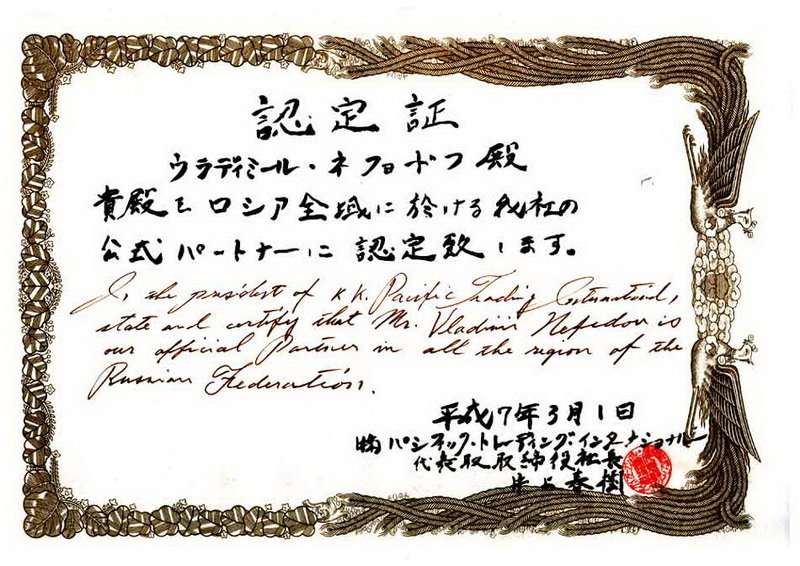 認定証
ウラディミール・ネフョドフ殿
貴殿をロシア全域に於ける我社の
公式パートナーに認定致します。
I, the president of K.K. Pacific Trading International,
state and certify that Mr. Vladimir Nefedov is
our official Partner in all the region of the
Russian Federation.
平成7年3月1日
㈱パシフィック・トレーディング・インターナショナル
代表取締役社長
井上春樹